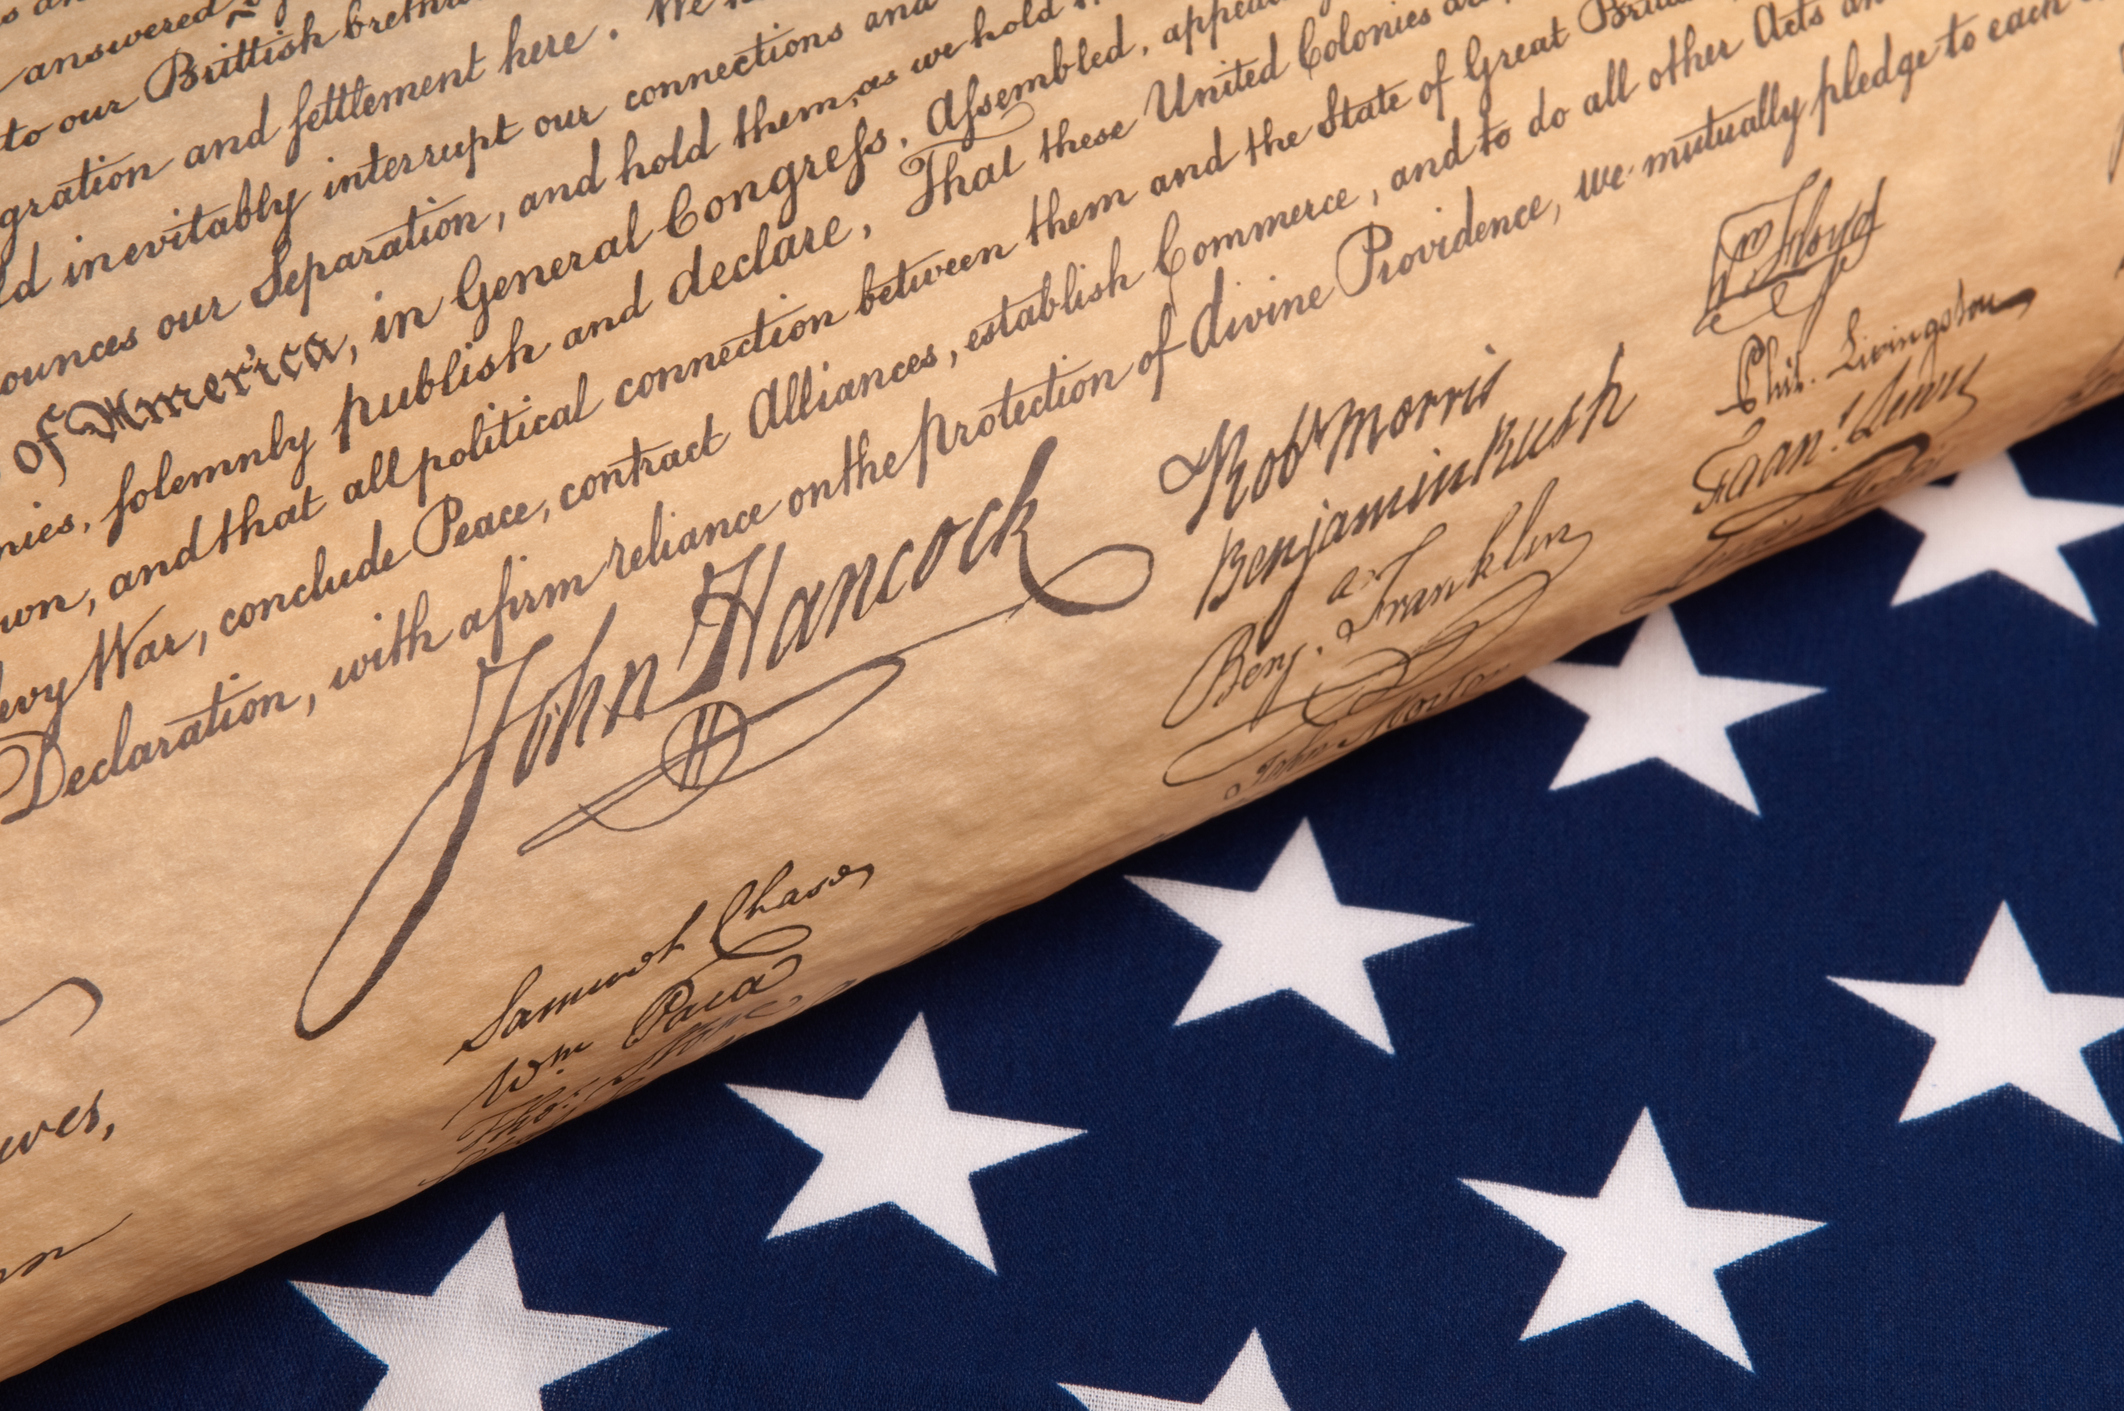 answered
to our Brittish
gration and settlement here. We
inevitably interrupt our connections and
ounces our Separation, and hold them, as we hold
of America, in General Congress, Assembled, appeal
nies, solemnly publish and declare, That these United Colonies
and that all political connection between them and the State of Great
evy War, conclude Peace, contract Alliances, establish Commerce, and to do all other Acts
Declaration, with a firm reliance on the protection of divine Providence, we mutually pledge to each
John Hancock
Robt Morris
Benjamin Rush
Benj. Franklin
John Morton
Wm Floyd
Phil. Livingston
Frans. Lewis
Samuel Chase
Wm Paca